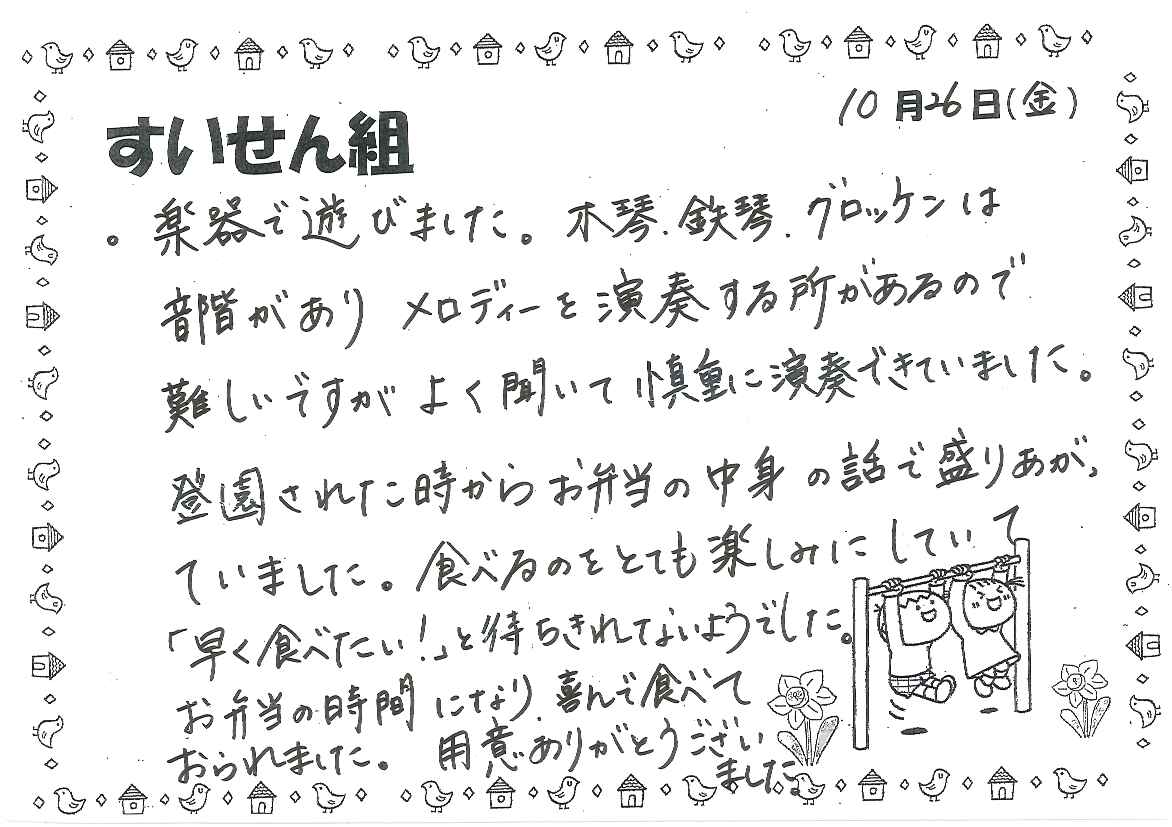 10月26日(金)
すいせん組
。楽器で遊びました。木琴、鉄琴、グロッケンは
音階があり メロディーを演奏する所があるので
難しいですが よく聞いて慎重に演奏できていました。
登園された時からお弁当の中身の話で盛りあがっ
ていました。食べるのをとても楽しみにしていて
「早く食べたい!」と待ちきれてないようでした。
お弁当の時間になり、喜んで食べて
おられました。 用意ありがとうござい
ました。